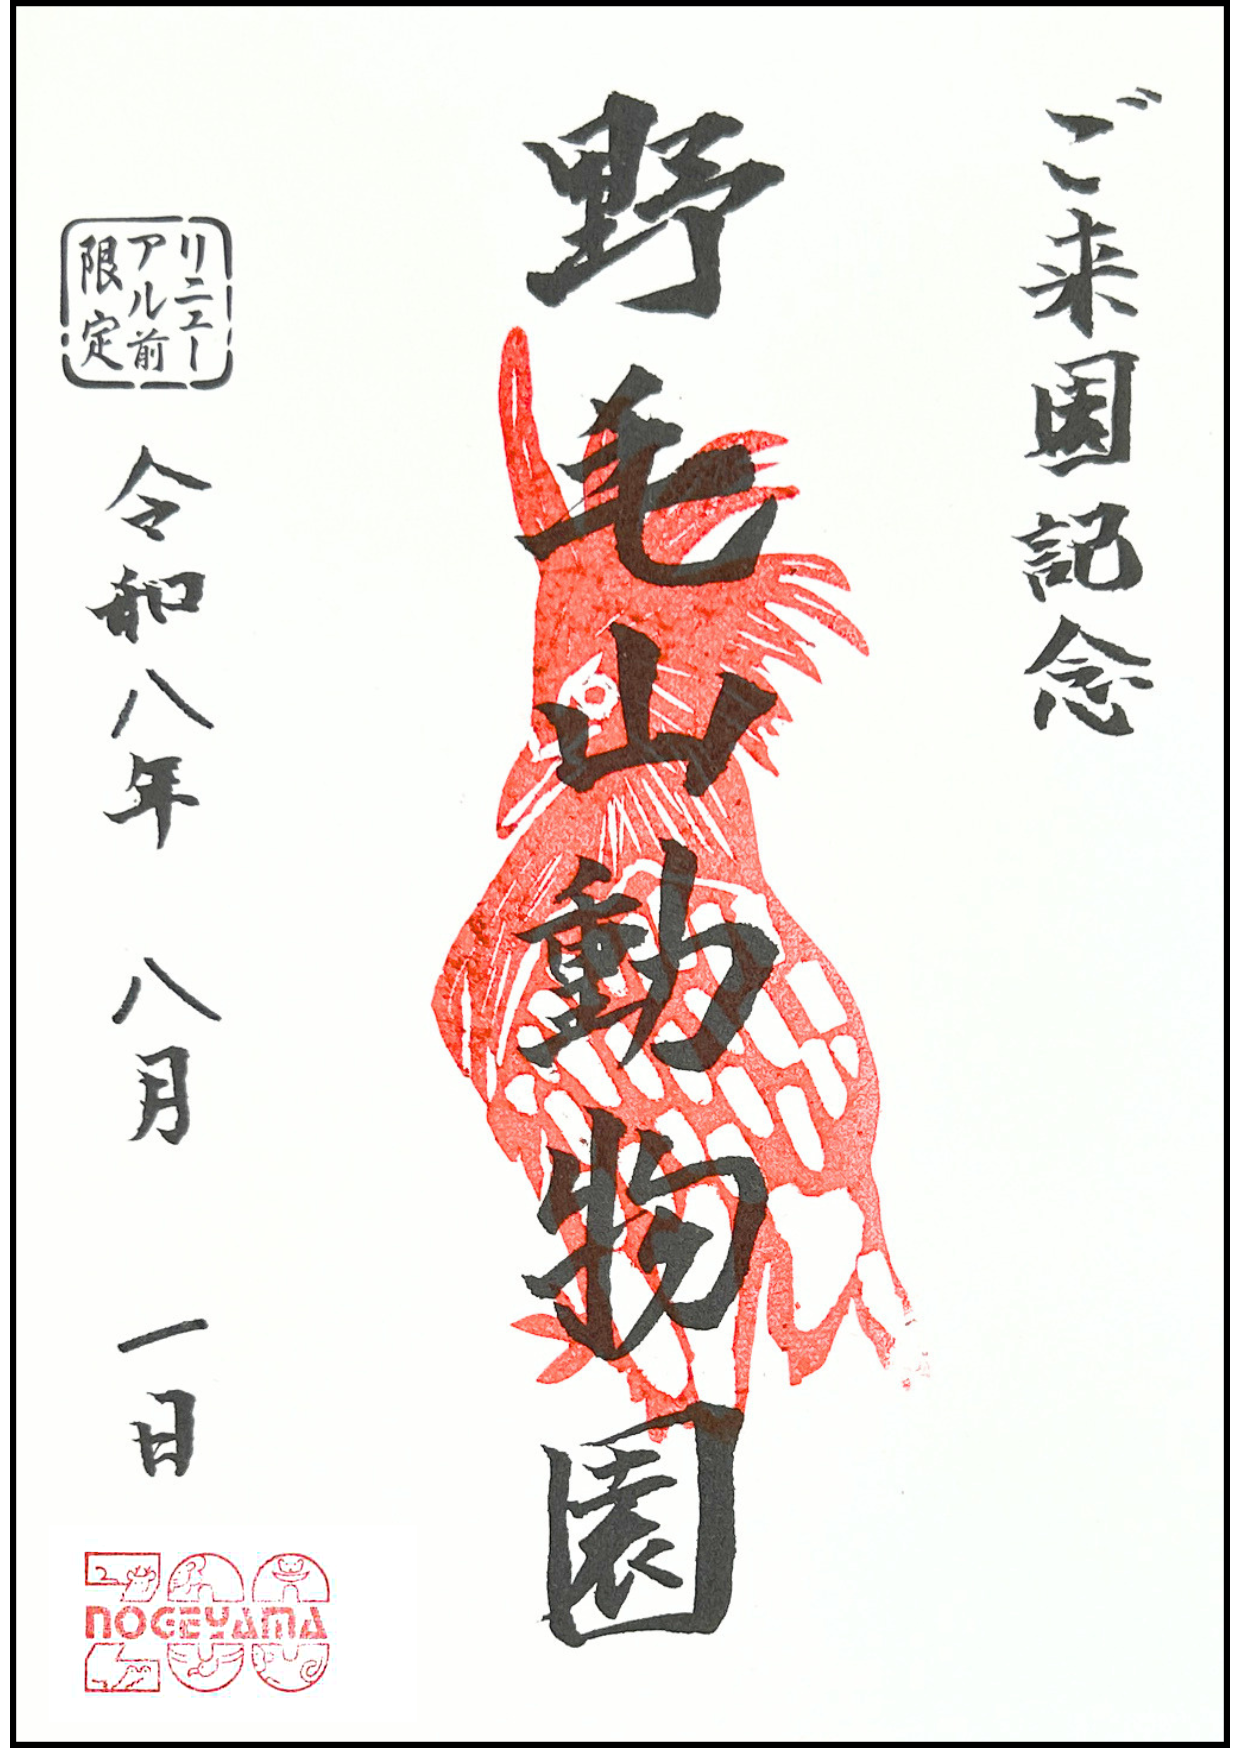 ご来園記念
野毛山動物園
リニュー
アル前
限定
令和八年 八月 一日
NOGEYAMA